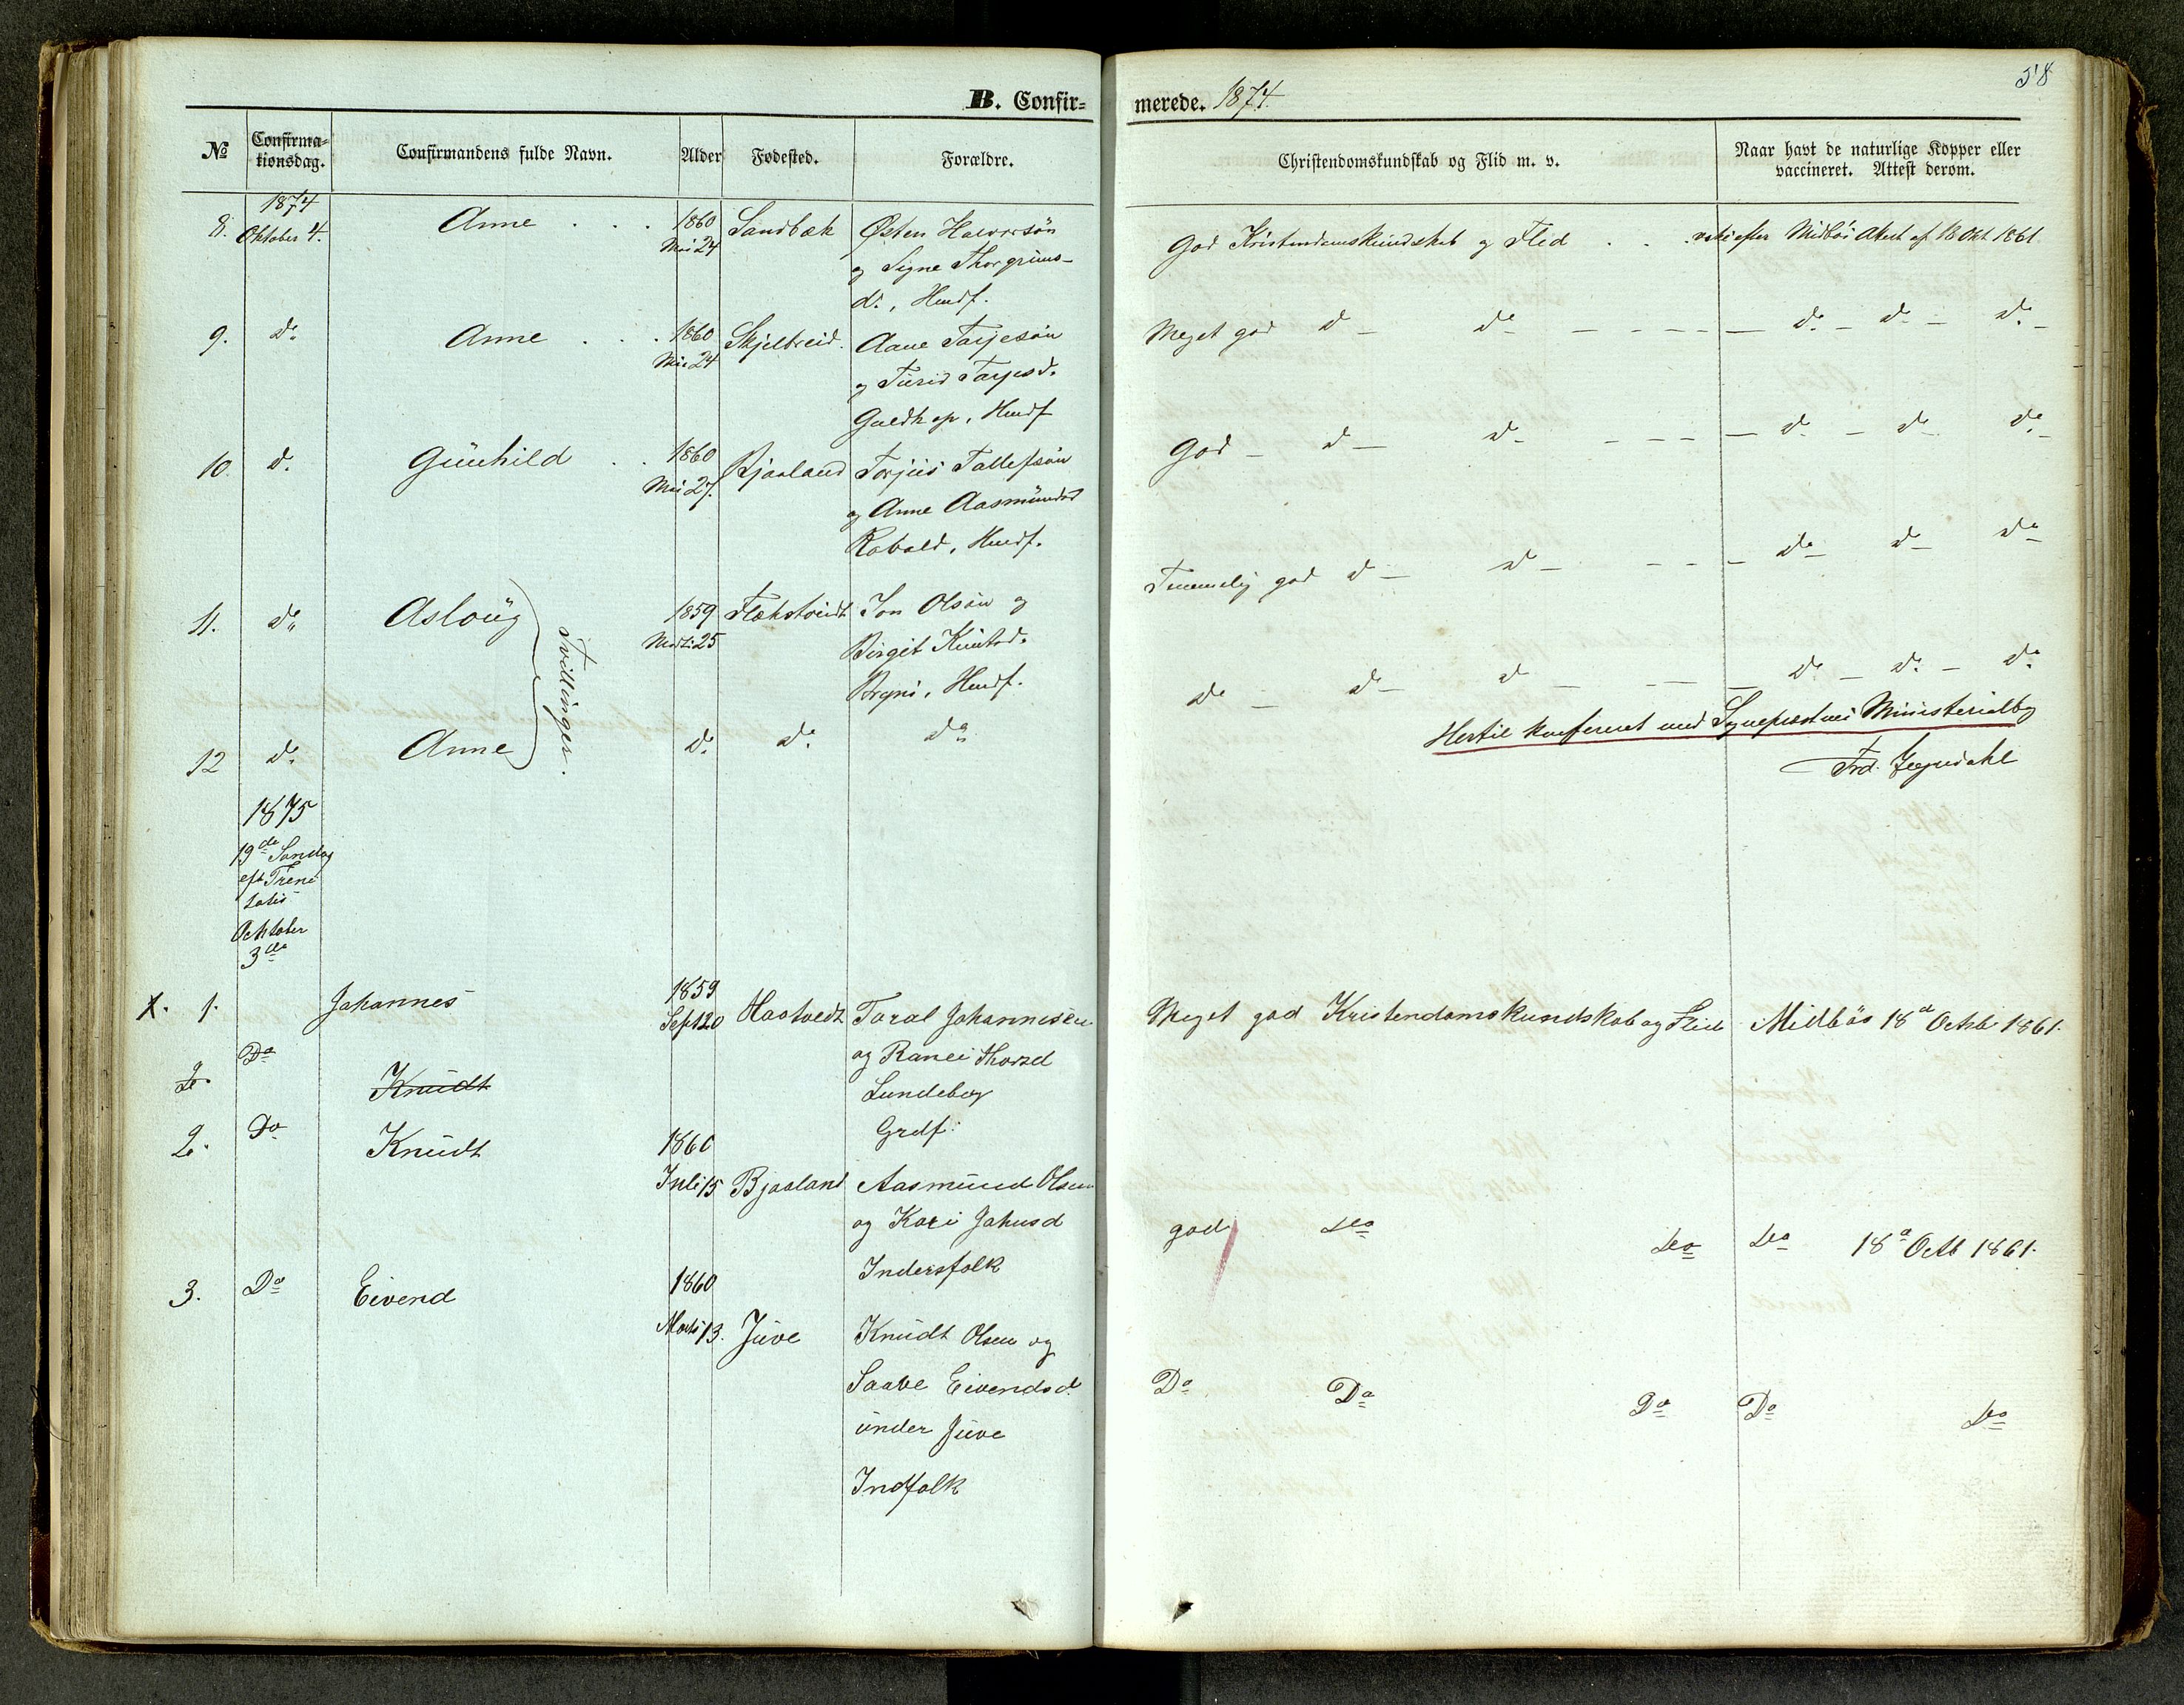 B. Confirmerede. 1874.
58
No
Confirmationsdag.
Confirmandens fulde Navn.
Alder
Fødested.
Forældre.
Christendomskundskab og Flid m. v.
Naar havt de naturlige Kopper eller vaccineret. Attest derom.
1874
8. Oktober 4. Anne . . . 1860 Mai 24 Sandbæk Østen Halvorsön
og Signe Thorgrims-
d:, Husf.
God Kristendomskundskab og Flid . . . efter Midbös Attest af 18 Okt. 1861.
9. do Anne . . . 1860 Mai 24 Skjelbreid. Aane Tarjesön
og Turid Tarjesd.
Guldhop, Husf
Meget god do do do do do
10. do Gunhild . . 1860 Mai 27. Bjaaland Torjus Tallefsön
og Anne Aasmundsd
Kobold, Husf.
God do do do do do
11. do Asloug 1859 Marts 25 Flekstveidt Jon Olsön og
Birgit Knutsd.
Bryni, Husf.
Temmelig god do do do do do
Tvillinger.
12 do Anne do do do
do do do do do do
Hertil konfereret med Sognepræstens Ministerialbog
Frd.
1875
19de Søndag
eft Treni
tatis
Ocktober
3die
X. 1. Johannes 1859 Sept 20 Haatvedt Taral Johannesen
og Ranei Thorsd
Lundebog
Grdf:
Meget god Kristendomskundskab og Flid Midbös 18d Octbr 1861.
2. Do Knudt
2. Do Knudt 1860 Juli 15 Bjaaland Aasmund Olsen
og Kari Johnsd
Indersfolk
god do do do 18d Octb 1861.
3. Do Eivend 1860 Marts 13. Juve Knudt Olsen og
Saave Eivendsd.
under Juve
Indfolk
Do Do Do Do do